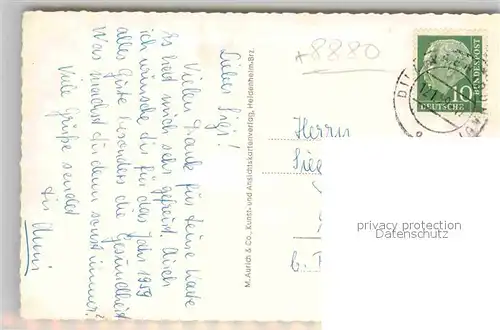 Lieber Sigi!
Vielen Dank für deine Karte
Es hat mich sehr gefreut. Auch
ich wünsche dir für das Jahr 1959
alles Gute besonders die Gesundheit
Was machst du denn sonst immer?
Viele Grüße sendet
M. Aurich & Co., Kunst- und Ansichtskartenverlag, Heidenheim-Brz.
8880
Herrn
Sieg
b.
10
DEUTSCHE
BUNDESPOST
privacy protection
Datenschutz